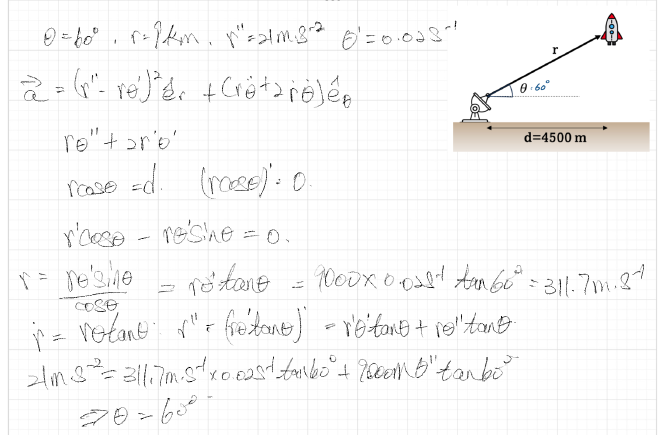 θ=60° , r=9km , r''=21m.s⁻² θ'=0.02s⁻¹
a⃗ = (r''- rθ')²êr + (rθ̈+2ṙθ̇)êθ
rθ''+2r'θ'
rcosθ=d. (rcosθ)'=0.
r'cosθ - rθ'sinθ=0.
r = rθ'sinθ/cosθ = rθ'tanθ = 9000×0.02s⁻¹ tan60° = 311.7m.s⁻¹
ṙ = rθtanθ. r'' = (rθ'tanθ)' = r'θ'tanθ + rθ''tanθ
21m.s⁻² = 311.7m.s⁻¹×0.02s⁻¹tan60° + 9000mθ''tan60°
⇒θ = 60°
r
θ:60°
d=4500 m